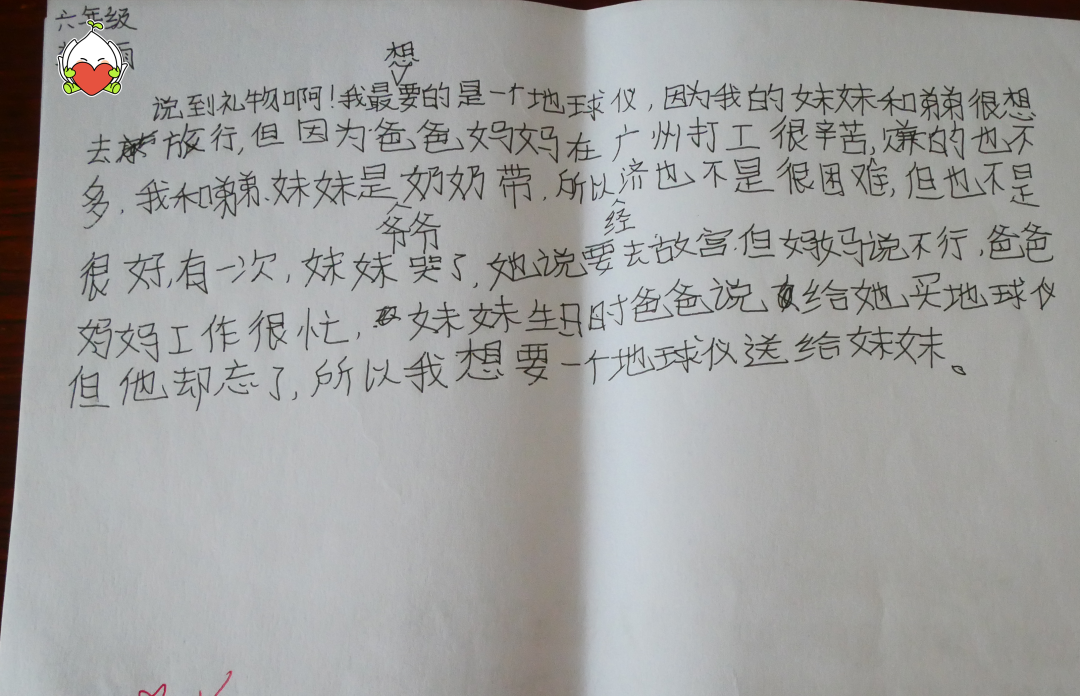 六年级
雨
说到礼物啊！我最想要的是一个地球仪，因为我的妹妹和弟弟很想
去放行，但因为爸爸妈妈在广州打工很辛苦，嫌的也不
多，我和弟弟、妹妹是爷爷奶奶带，所以经济也不是很困难，但也不是
很好，有一次，妹妹哭了，她说要去故宫，但妈妈说不行，爸爸
妈妈工作很忙，妹妹生日时爸爸说给她买地球仪
但他却忘了，所以我想要一个地球仪送给妹妹。